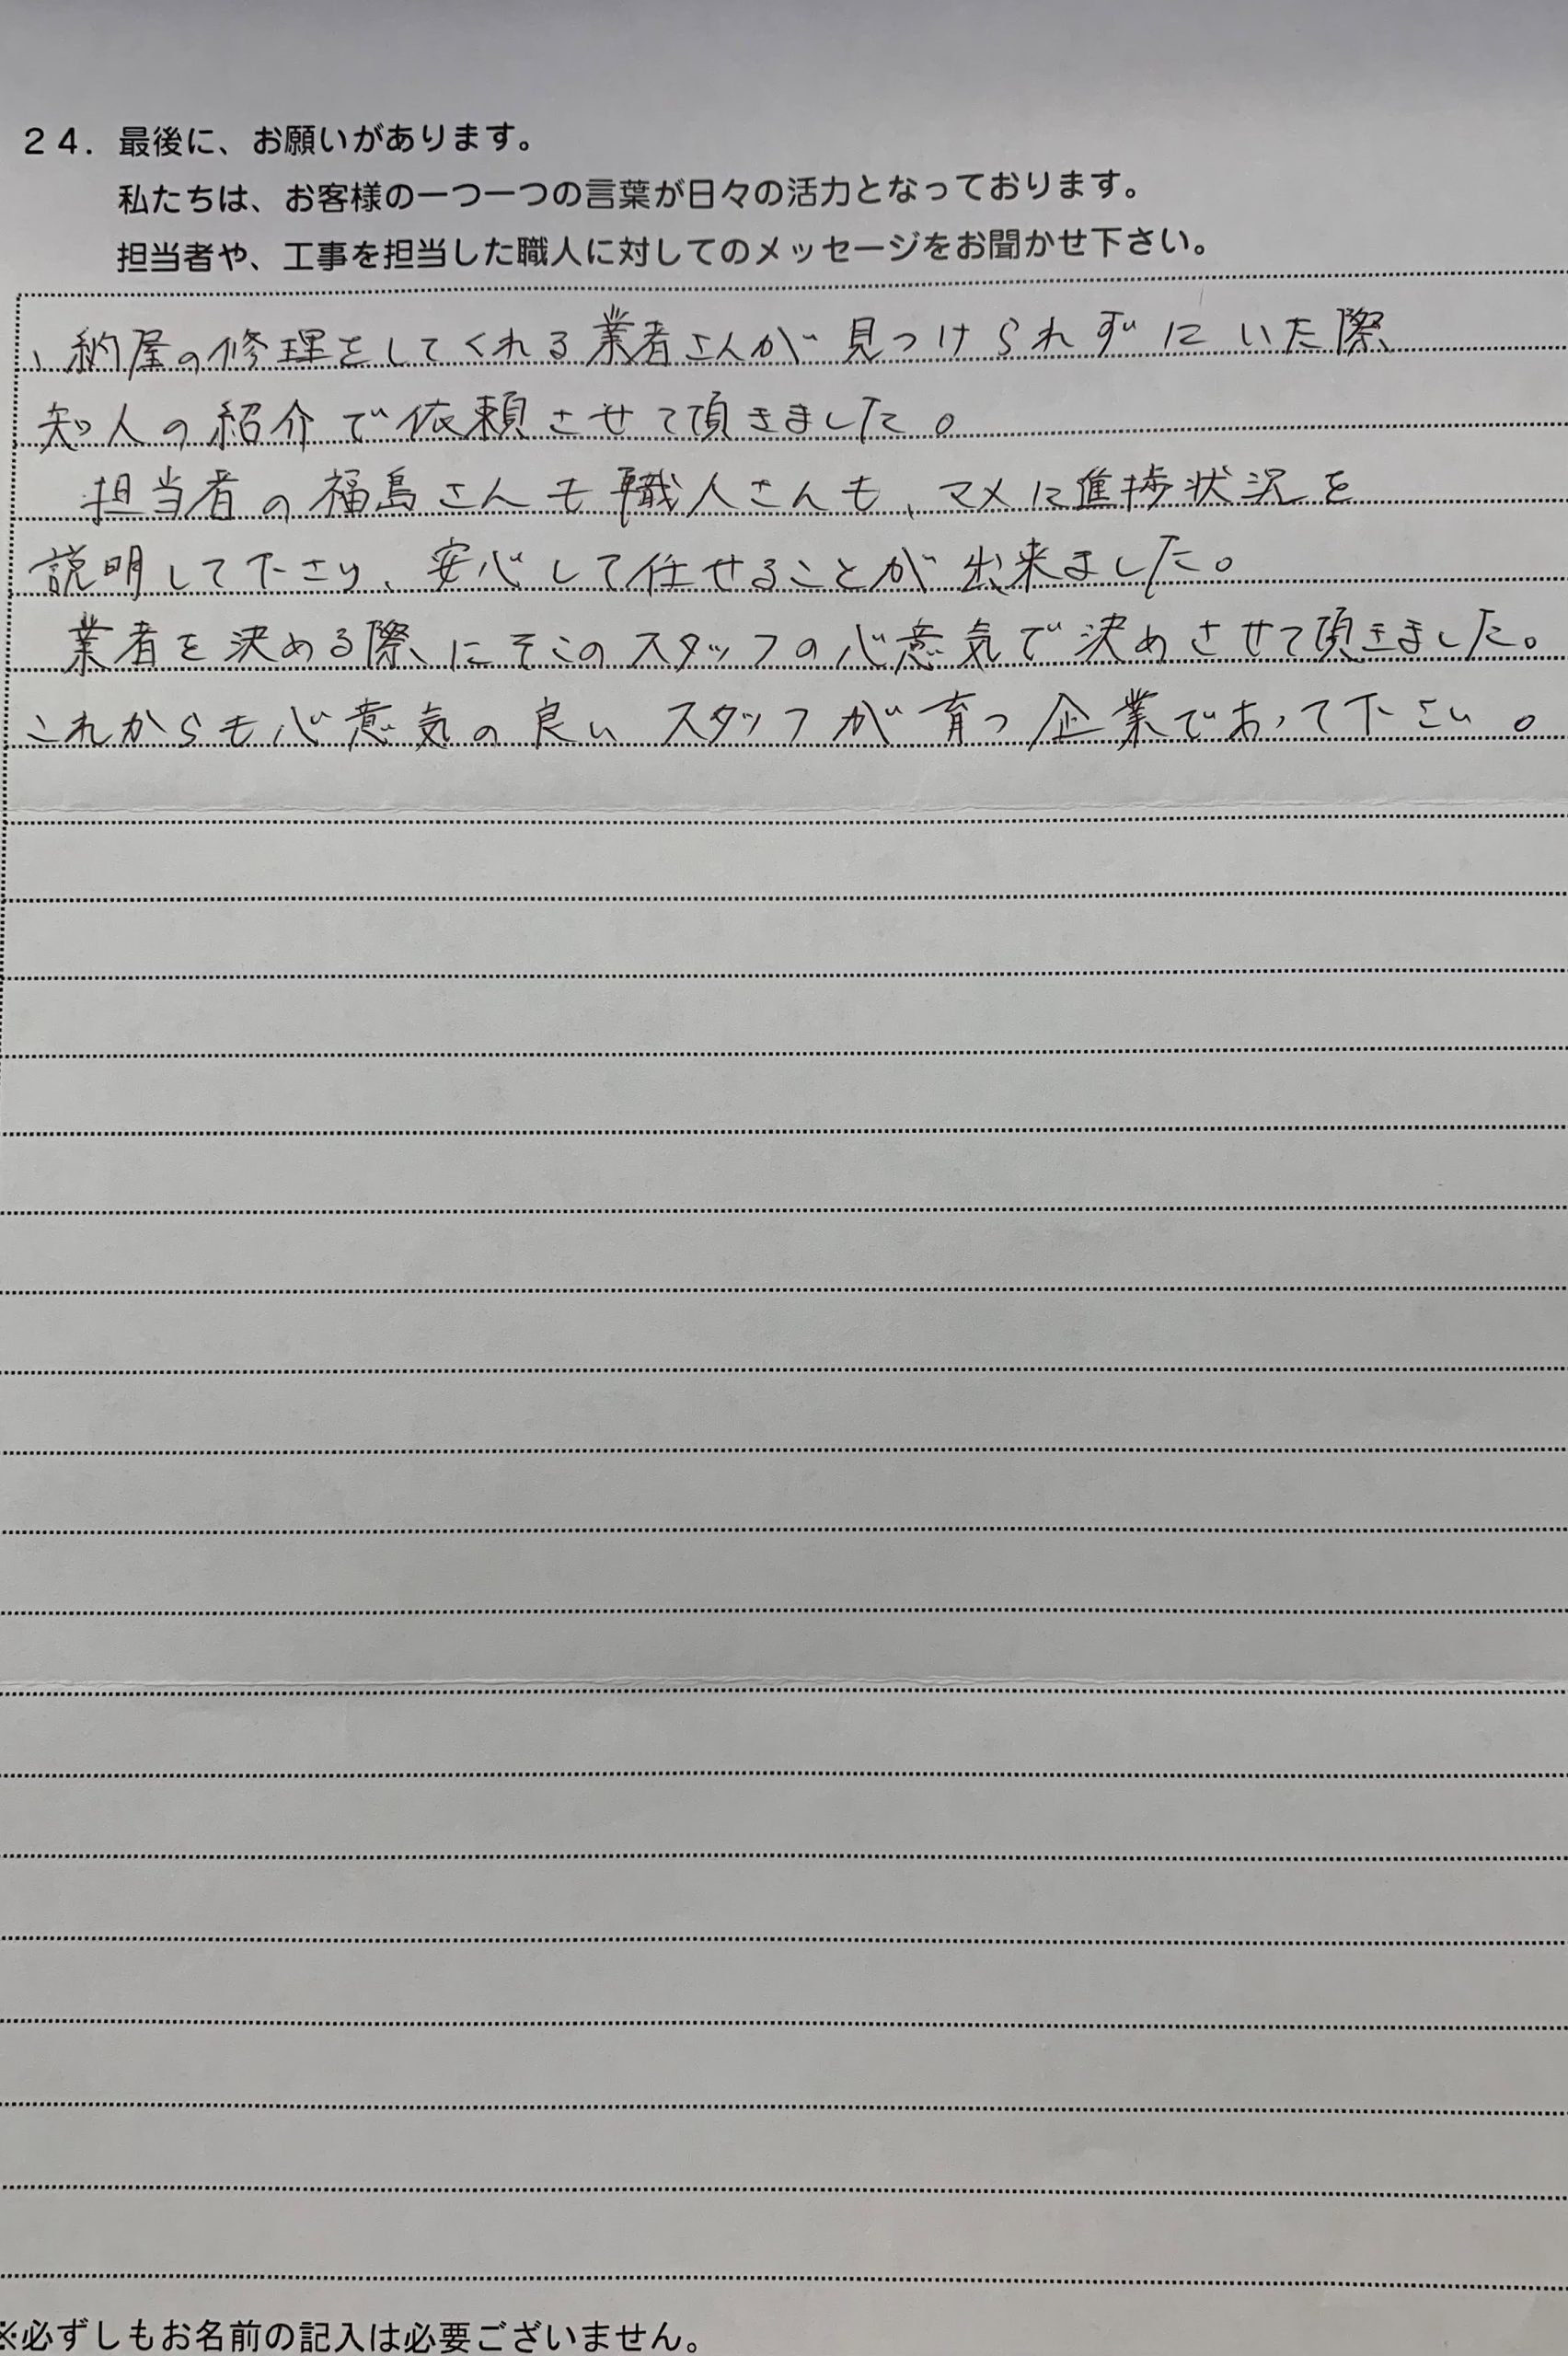 ２４．最後に、お願いがあります。
私たちは、お客様の一つ一つの言葉が日々の活力となっております。
担当者や、工事を担当した職人に対してのメッセージをお聞かせ下さい。
、納屋の修理をしてくれる業者さんが見つけられずにいた際
知人の紹介で依頼させて頂きました。
担当者の福島さんも職人さんも、マメに進捗状況を
説明して下さり、安心して任せることが出来ました。
業者を決める際にそこのスタッフの心意気で決めさせて頂きました。
これからも心意気の良いスタッフが育つ企業であって下さい。
※必ずしもお名前の記入は必要ございません。